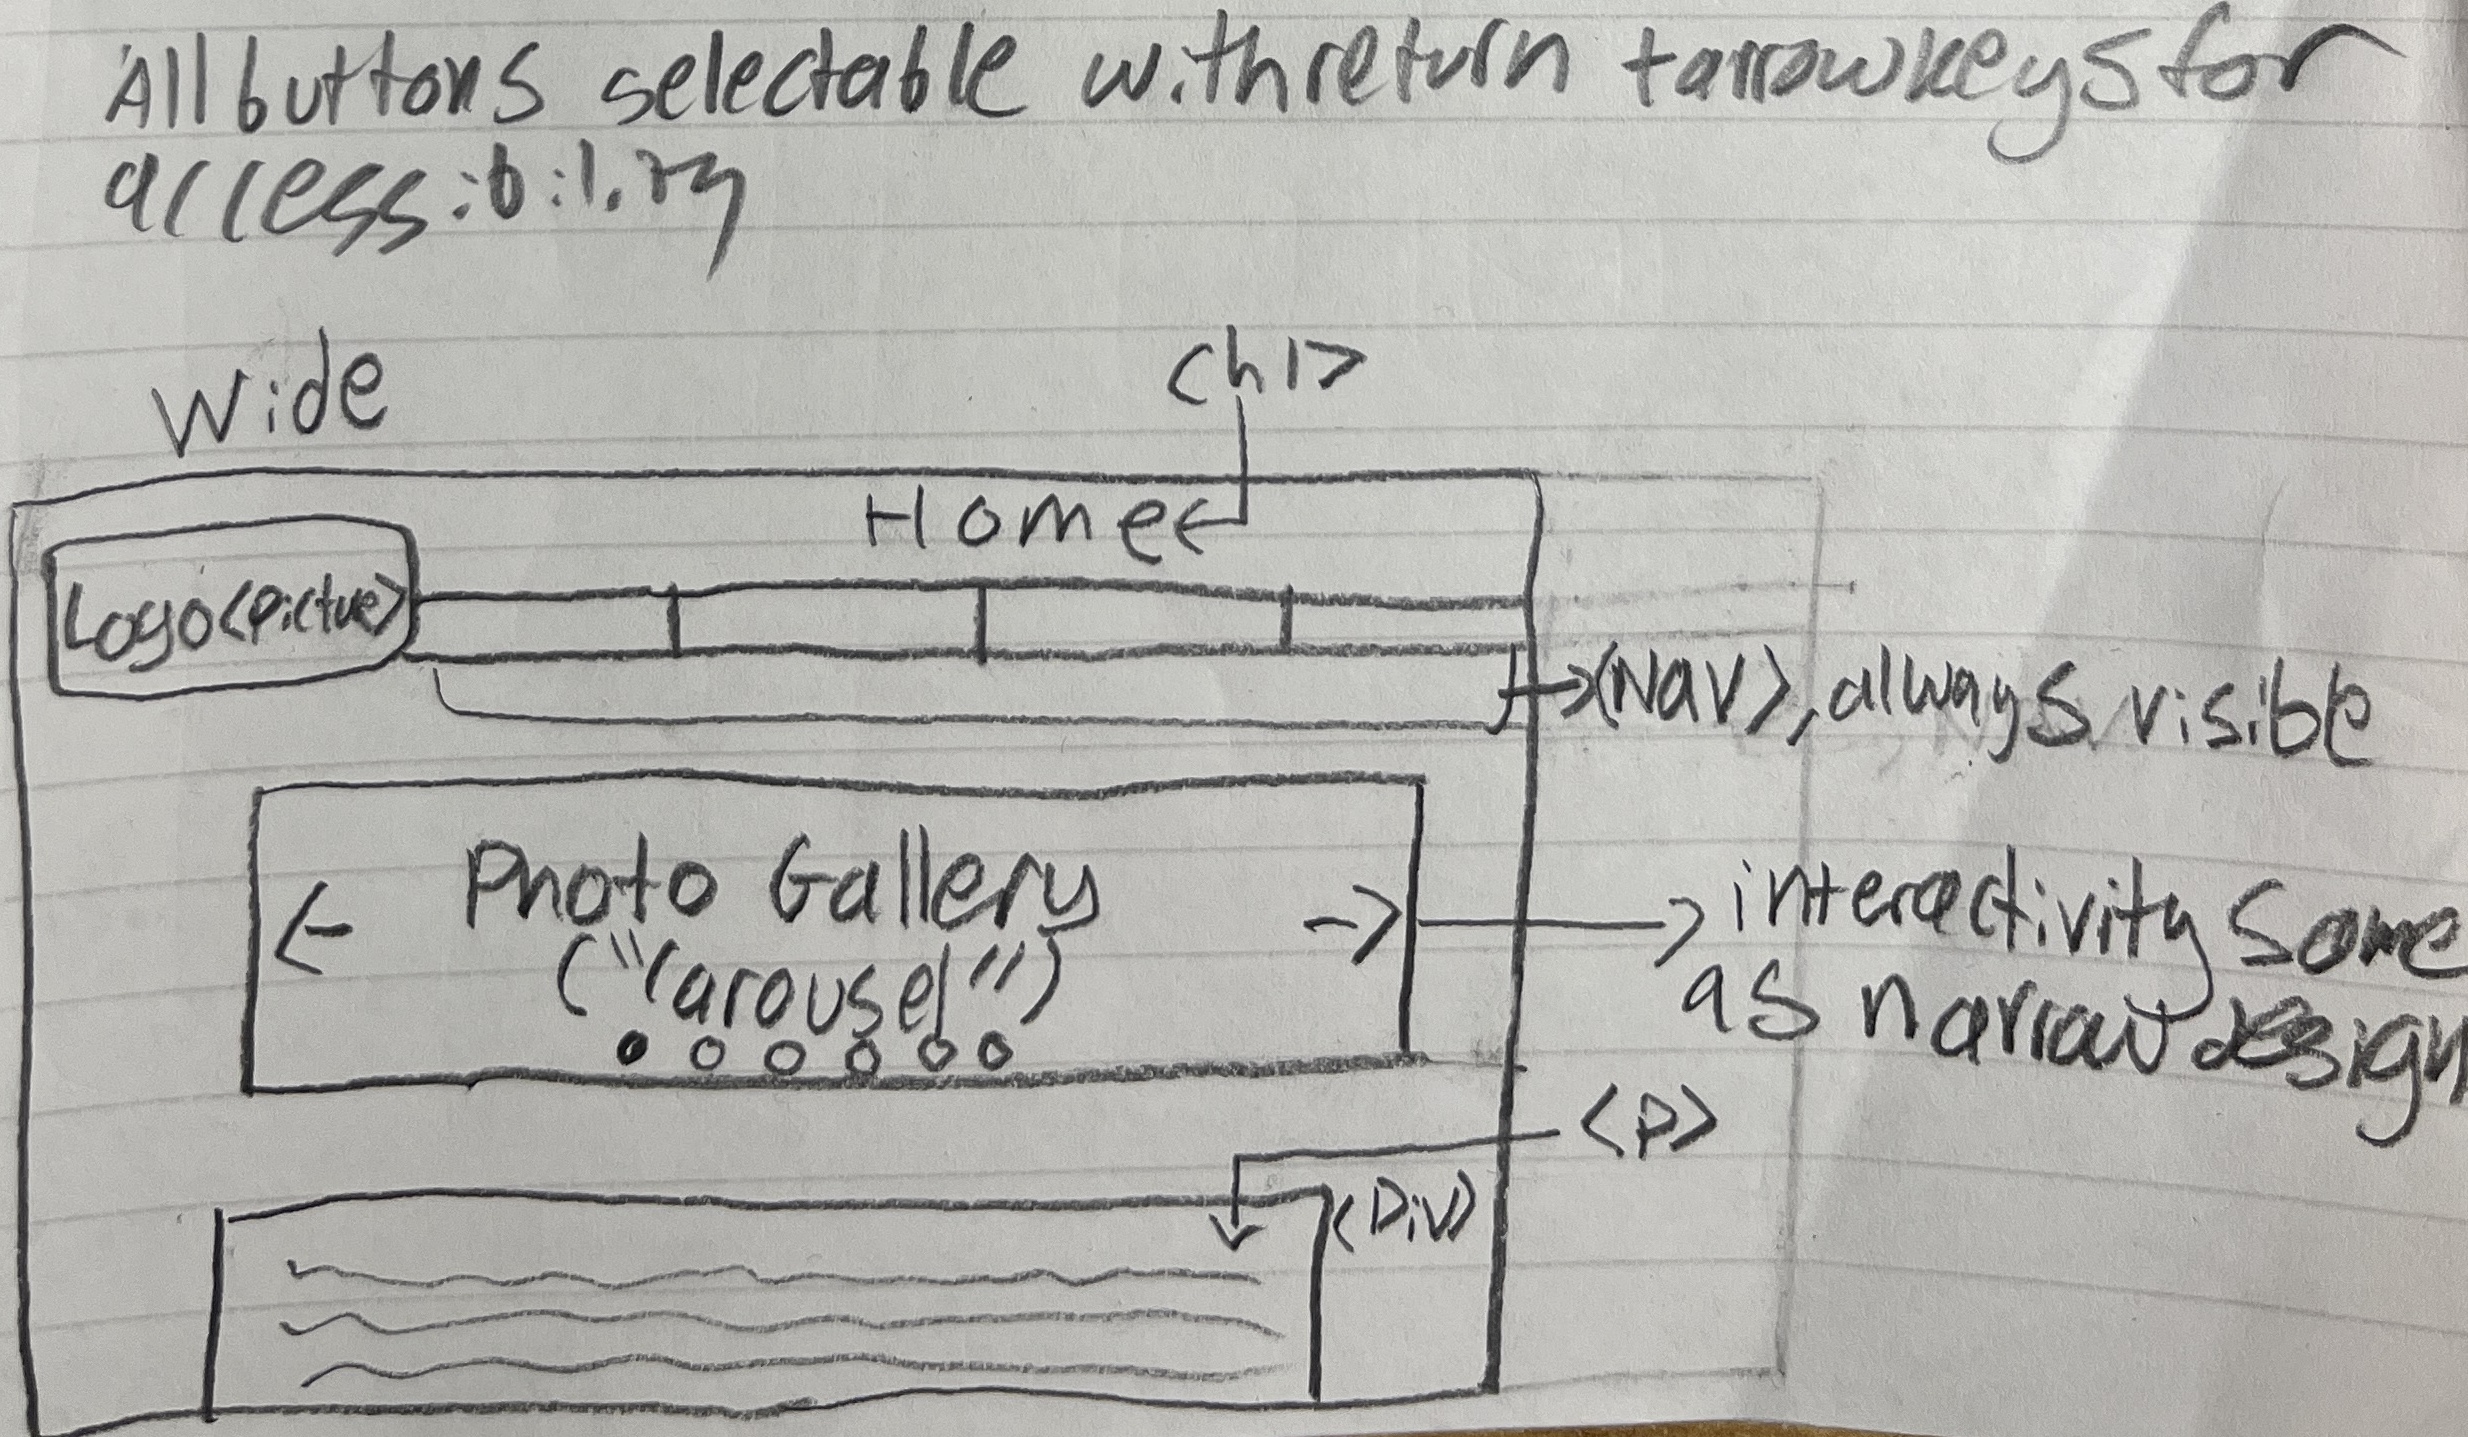 All buttons selectable with return + arrow keys for
accessibility
Wide
<h1>
Home
Logo <Pictue>
<Nav>, always visible
Photo Gallery
("Carousel")
interactivity same
as narrow design
<P>
<Div>